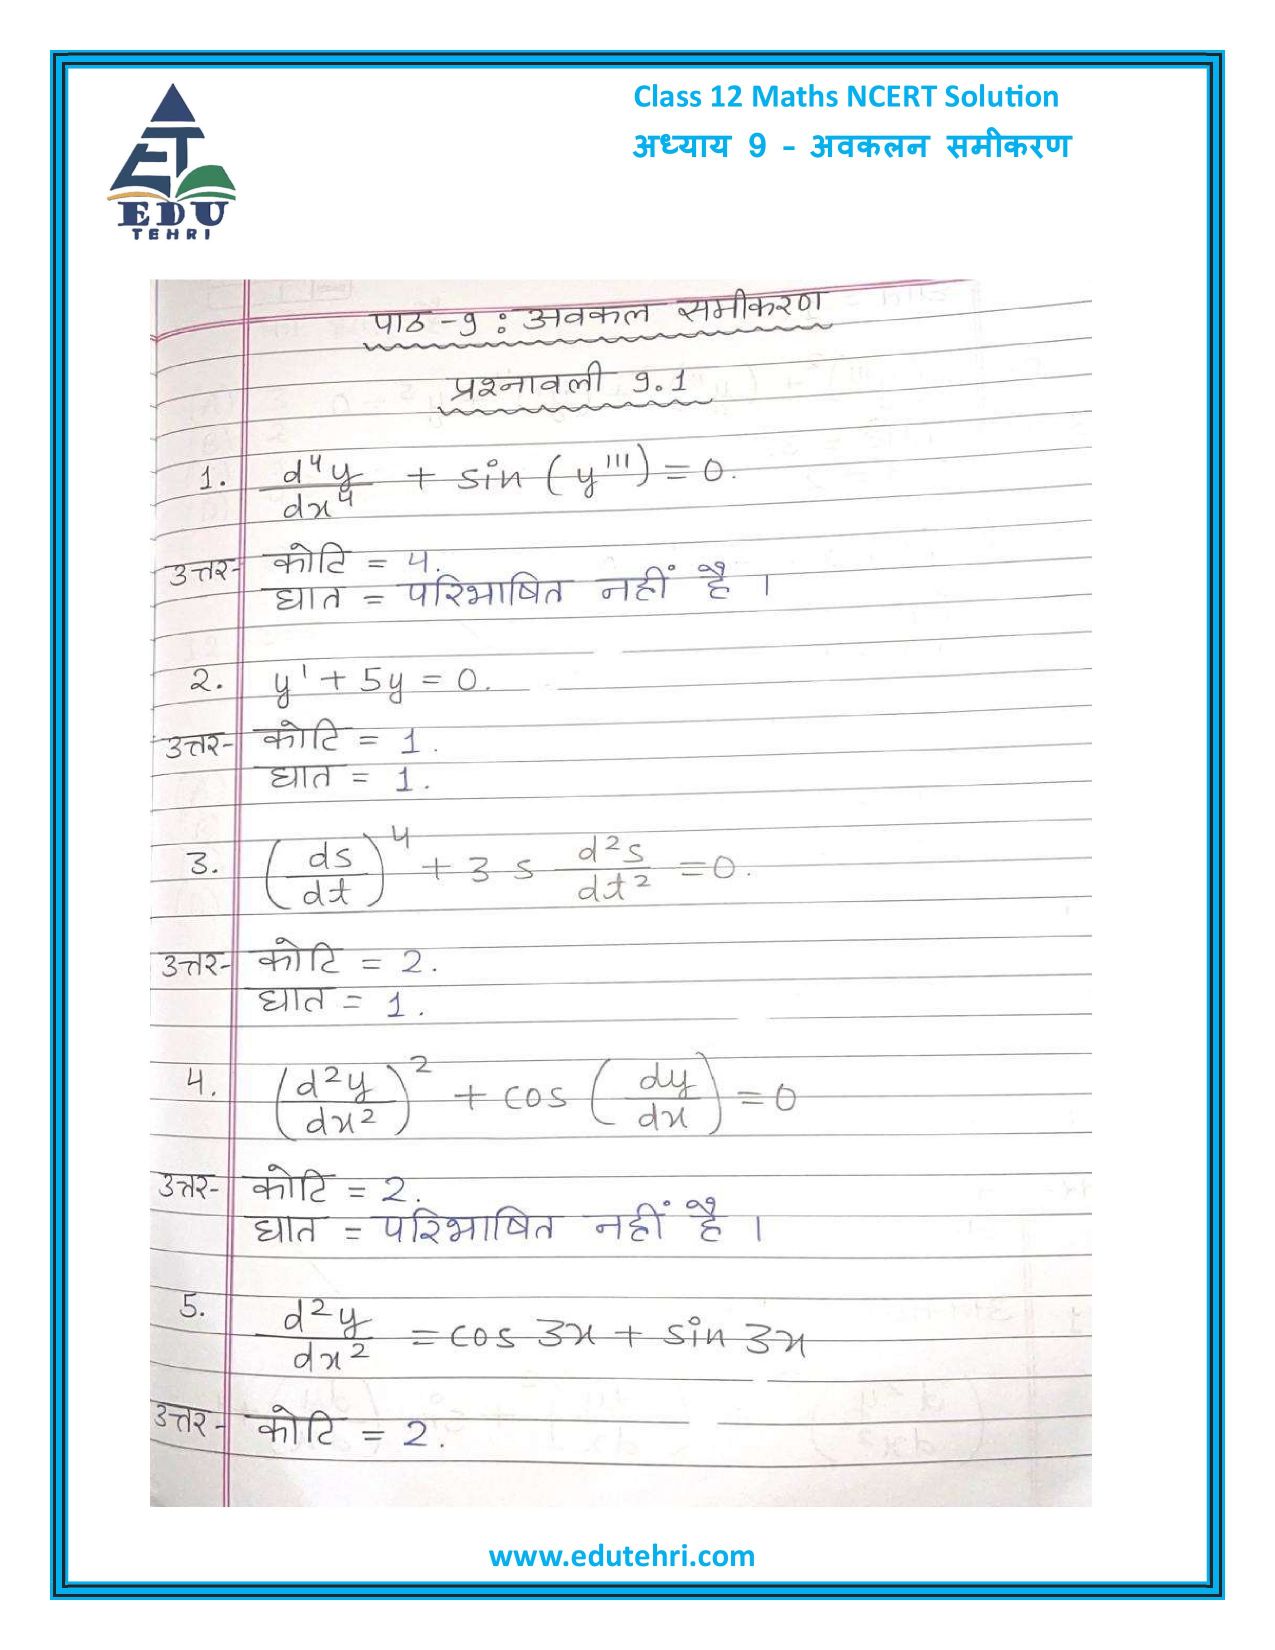 Class 12 Maths NCERT Solution
अध्याय 9 – अवकलन समीकरण
EDU
TEHRI
पाठ -9 : अवकल समीकरण
प्रश्नावली 9.1
1. d⁴y/dx⁴ + sin (y''') = 0.
उत्तर- कोटि = 4.
घात = परिभाषित नहीं है ।
2. y' + 5y = 0.
उत्तर- कोटि = 1.
घात = 1.
3. (ds/dt)⁴ + 3 s d²s/dt² = 0.
उत्तर- कोटि = 2.
घात = 1.
4. (d²y/dx²)² + cos (dy/dx) = 0
उत्तर- कोटि = 2.
घात = परिभाषित नहीं है ।
5. d²y/dx² = cos 3x + sin 3x
उत्तर- कोटि = 2.
www.edutehri.com